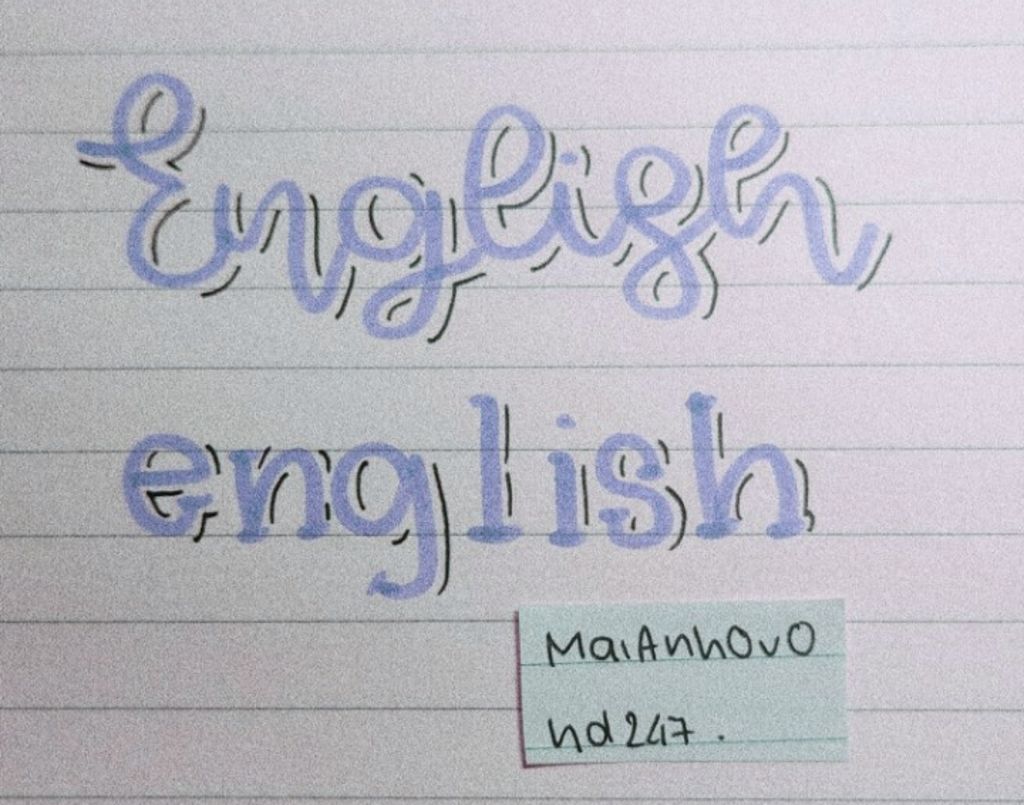 English
english
MaiAnhOvO
hd247.